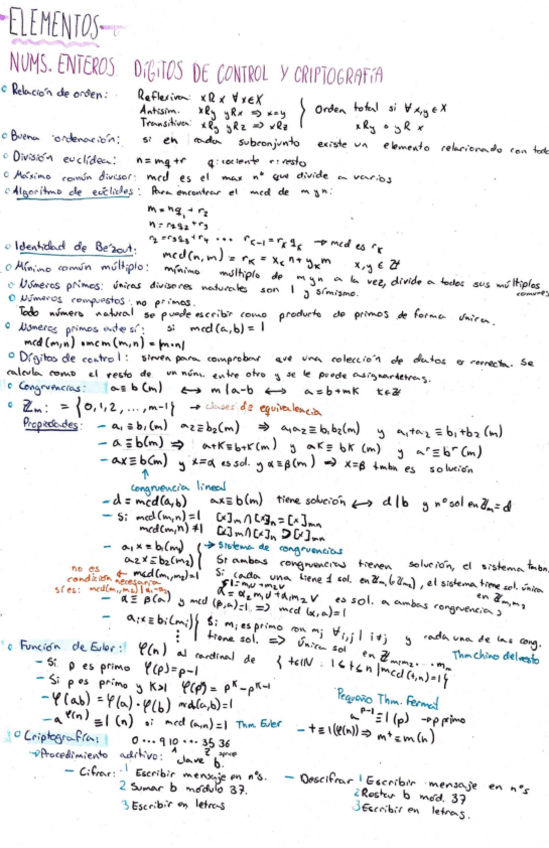 ELEMENTOS
NUMS. ENTEROS DÍGITOS DE CONTROL Y CRIPTOGRAFÍA
Relación de orden: Reflexiva xRx ∀x∈X
Antisim. xRy yRx ⇒ x=y } Orden total si ∀x,y∈X
Transitiva xRy yRz ⇒ xRz xRy o yRx
Buena ordenación: si en cada subconjunto existe un elemento relacionado con todo
División euclídea: n=mq+r q:cociente r:resto
Máximo común divisor: mcd es el max nº que divide a varios
Algoritmo de euclides: Para encontrar el mcd de m y n:
m=nq₁+r₂
n=r₂q₂+r₃
r₂=r₃q₃+r₄ ... rₖ₋₁=rₖqₖ → mcd es rₖ
Identidad de Bézout: mcd(n,m)=rₖ=xₖn+yₖm x,y∈ℤ
Mínimo común múltiplo: mínimo múltiplo de m y n a la vez, divide a todos sus múltiplos comunes
Números primos: únicos divisores naturales son 1 y símismo.
Números compuestos: no primos.
Todo número natural se puede escribir como producto de primos de forma única.
Números primos entre sí: si mcd(a,b)=1
mcd(m,n)·mcm(m,n)=|m·n|
Dígitos de control: sirven para comprobar que una colección de datos es correcta. Se
calcula como el resto de un núm. entre otro y se le puede asignar letras.
Congruencias: a≡b(m) ↔ m|a-b ↔ a=b+mk k∈ℤ
ℤm: ={0,1,2,...,m-1} → clases de equivalencia
Propiedades: - a₁≡b₁(m) a₂≡b₂(m) ⇒ a₁a₂≡b₁b₂(m) y a₁+a₂≡b₁+b₂(m)
- a≡b(m) ⇒ a+k≡b+k(m) y ak≡bk(m) y aʳ≡bʳ(m)
- ax≡b(m) y x=α es sol. y α≡β(m) ⇒ x=β tmbn es solución
↑
congruencia lineal
- d=mcd(a,m) ax≡b(m) tiene solución ↔ d|b y nº sol en ℤm=d
- Si mcd(m,n)=1 [x]m∩[x]n=[x]mn
mcd(m,n)≠1 [x]m∩[x]n⊃[x]mn
- a₁x≡b₁(m₁) } → Sistema de congruencias
a₂x≡b₂(m₂) Si ambas congruencias tienen solución, el sistema tmbn.
no es condición necesaria ← mcd(m₁,m₂)=1 Si cada una tiene 1 sol. en ℤm₁(ℤm₂), el sistema tiene sol. única en ℤm₁m₂
α=α₂m₁u+α₁m₂v es sol. a ambas congruencias
- α≡β(a) y mcd(β,a)=1 ⇒ mcd(α,a)=1
- aᵢx≡bᵢ(mᵢ) } Si mᵢ es primo con mⱼ ∀i,j | i≠j y cada una de las cong.
tiene sol. ⇒ Única sol en ℤm₁m₂...mₙ Thm chino del resto
Función de Euler: φ(n) al cardinal de {t∈ℕ 1≤t≤n | mcd(t,n)=1}
- Si p es primo φ(p)=p-1
- Si p es primo y k>1 φ(pᵏ)=pᵏ-pᵏ⁻¹ Pequeño Thm. Fermat
- φ(ab)=φ(a)·φ(b) mcd(a,b)=1 aᵖ⁻¹≡1(p) → p primo
- a^φ(n)≡1(n) si mcd(a,n)=1 Thm. Euler - t≡1(φ(n)) ⇒ mᵗ≡m(n)
Criptografía: 0...9 10...35 36
→ Procedimiento aditivo: clave b.
- Cifrar: 1 Escribir mensaje en nºs. - Descifrar 1 Escribir mensaje en nºs
2 Sumar b módulo 37. 2 Restar b mód. 37
3 Escribir en letras 3 Escribir en letras.